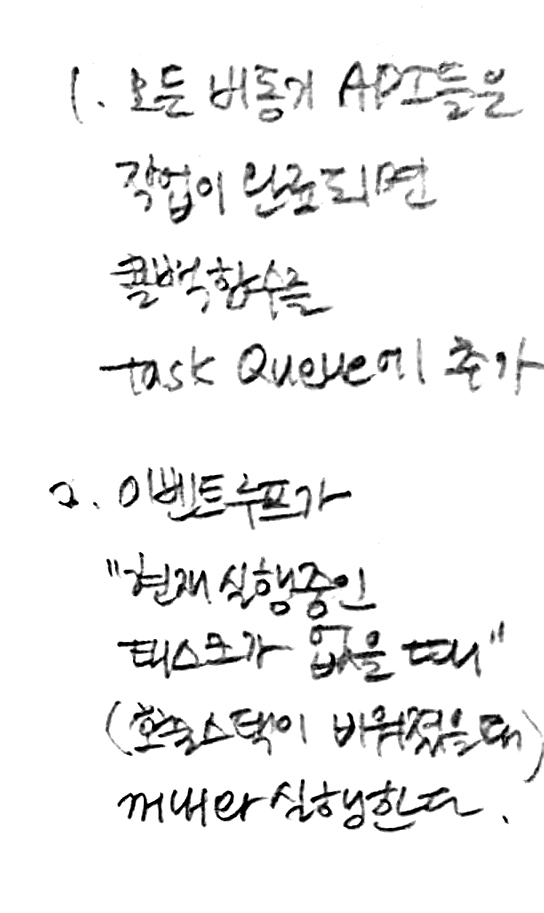 1. 모든 비동기 API들은
작업이 완료되면
콜백함수를
task Queue에 추가
2. 이벤트루프가
"현재 실행중인
태스크가 없을 때"
(호출스택이 비워졌을때)
꺼내와 실행한다.